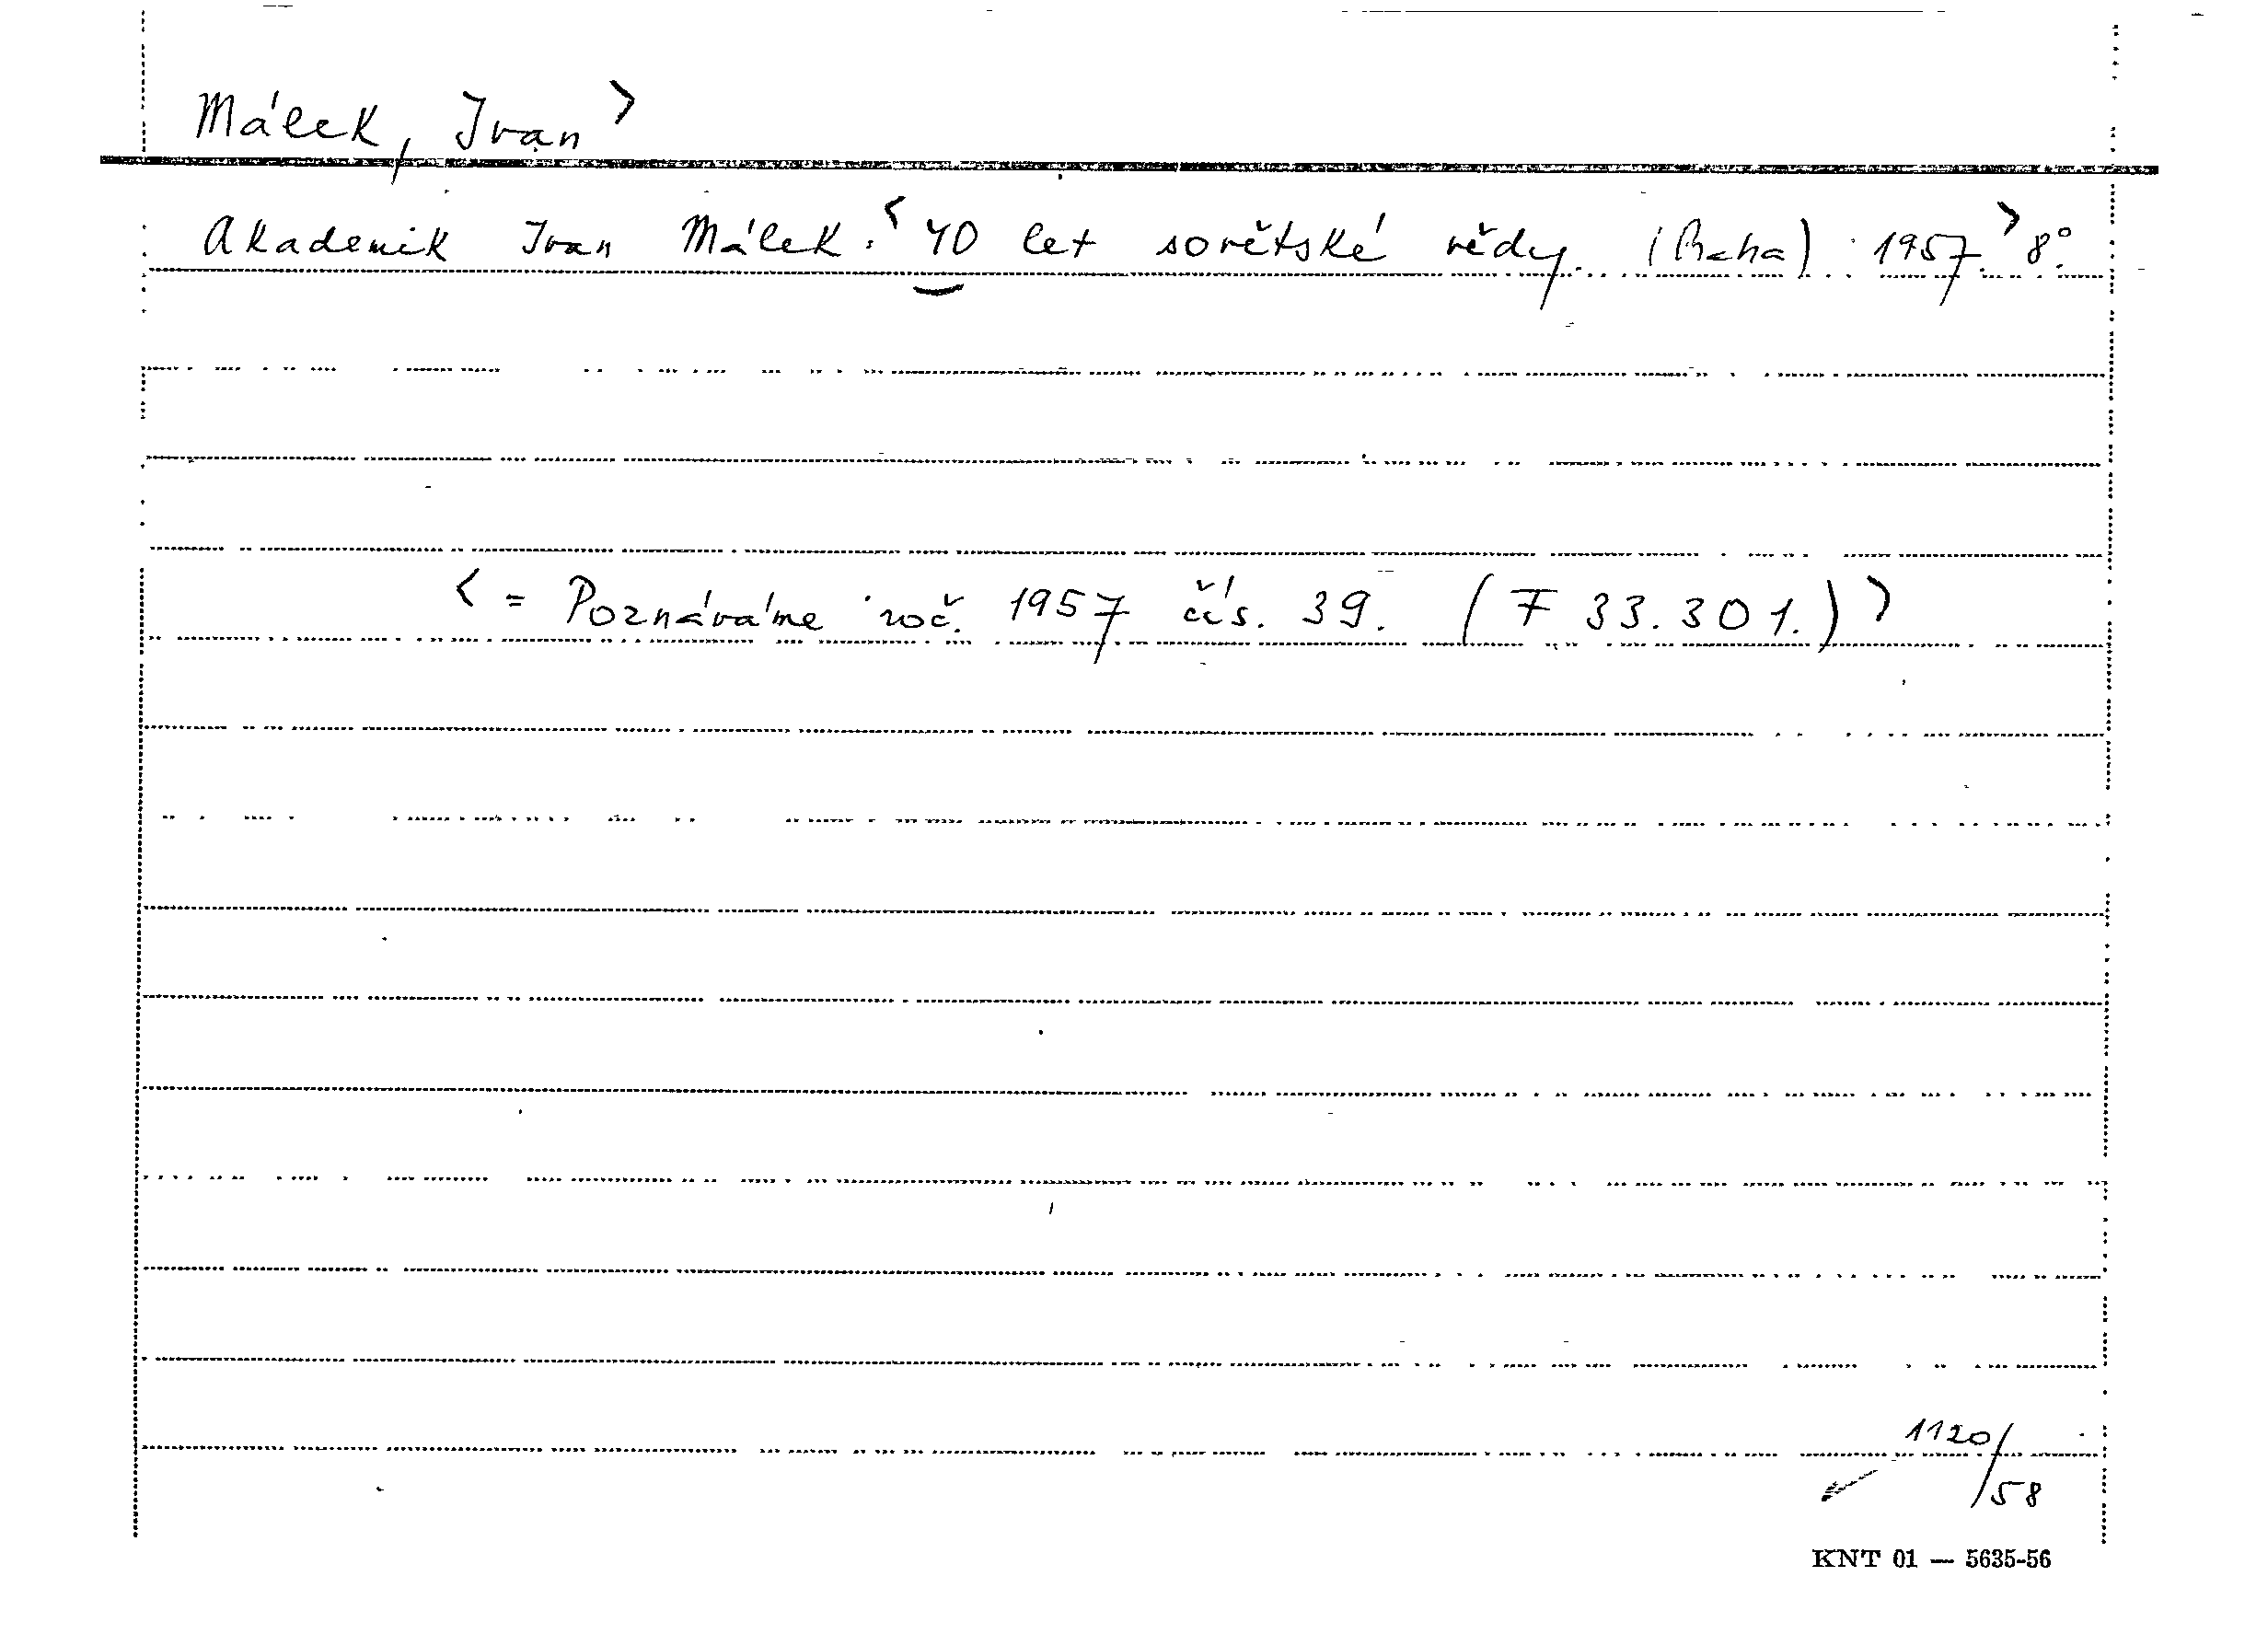 Málek, Ivan >
Akademik Ivan Málek: < 40 let sovětské vědy. (Praha) 1957. > 8°.
< = Poznáváme roč. 1957 čís. 39. (F 33.301.) >
1120/
58
KNT 01 — 5635-56